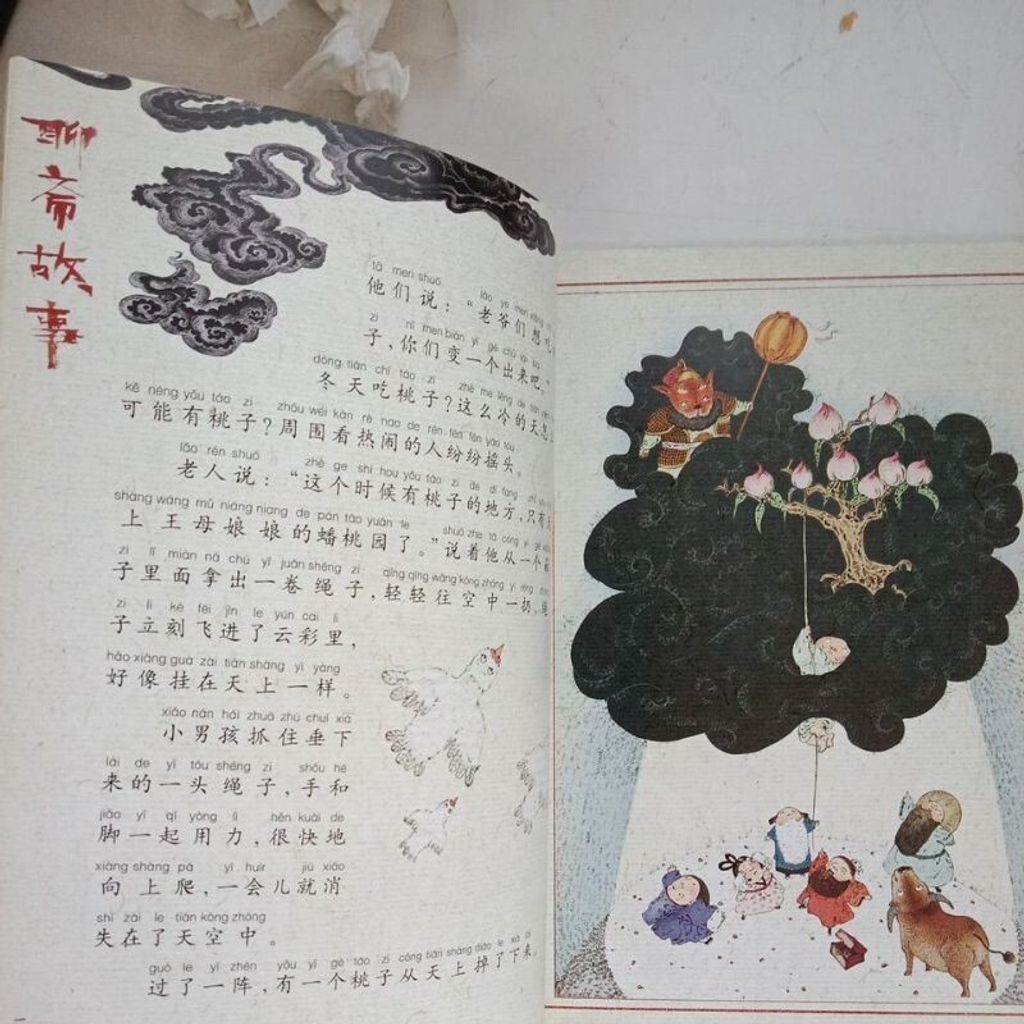 聊斋故事
tā men shuō lǎo yé men xiǎng
他们说：“老爷们想吃
zi nǐ men biàn yí gè chū lái ba
子，你们变一个出来吧。”
dōng tiān chī táo zi zhè me lěng de tiān
冬天吃桃子？这么冷的天怎
kě néng yǒu táo zi zhōu wéi kàn rè nao de rén fēn fēn yáo tóu
可能有桃子？周围看热闹的人纷纷摇头。
lǎo rén shuō zhè ge shí hou yǒu táo zi de dì fang
老人说：“这个时候有桃子的地方，只有
shàng wáng mǔ niáng niang de pán táo yuán le shuō zhe tā cóng yí
上王母娘娘的蟠桃园了。”说着他从一个
zi lǐ miàn ná chū yì juǎn shéng zi qīng qīng wǎng kōng zhōng yì rēng
子里面拿出一卷绳子，轻轻往空中一扔，绳
zi lì kè fēi jìn le yún cai lǐ
子立刻飞进了云彩里，
hǎo xiàng guà zài tiān shàng yí yàng
好像挂在天上一样。
xiǎo nán hái zhuā zhù chuí xià
小男孩抓住垂下
lái de yì tóu shéng zi shǒu hé
来的一头绳子，手和
jiǎo yì qǐ yòng lì hěn kuài de
脚一起用力，很快地
xiàng shàng pá yí huìr jiù xiāo
向上爬，一会儿就消
shī zài le tiān kōng zhōng
失在了天空中。
guò le yí zhèn yǒu yí gè táo zi cóng tiān shàng diào le xià lái
过了一阵，有一个桃子从天上掉了下来，